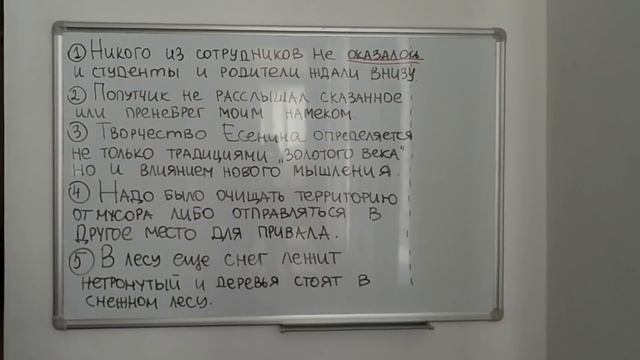 ① Никого из сотрудников не оказалось
и студенты и родители ждали внизу.
② Попутчик не расслышал сказанное
или пренебрег моим намеком.
③ Творчество Есенина определяется
не только традициями „золотого века"
но и влиянием нового мышления.
④ Надо было очищать территорию
от мусора либо отправляться в
другое место для привала.
⑤ В лесу еще снег лежит
нетронутый и деревья стоят в
снежном лесу.